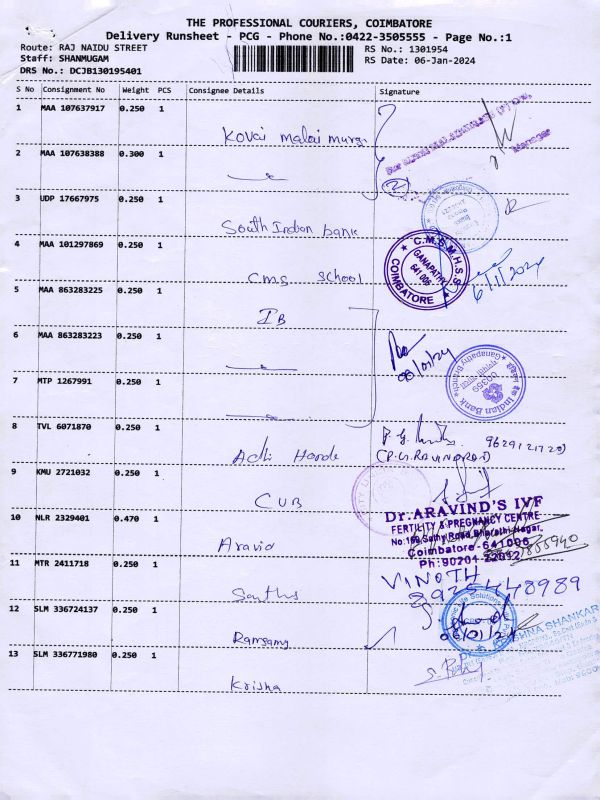 THE PROFESSIONAL COURIERS, COIMBATORE
Delivery Runsheet - PCG - Phone No.:0422-3505555 - Page No.:1
Route: RAJ NAIDU STREET
RS No.: 1301954
Staff: SHANMUGAM
RS Date: 06-Jan-2024
DRS No.: DCJB130195401
S No Consignment No Weight PCS Consignee Details Signature
1 MAA 107637917 0.250 1
Kovai malai murgi
Manager
2 MAA 107638388 0.300 1
(2)
3 UDP 17667975 0.250 1
South Indian bank
4 MAA 101297869 0.250 1
C.M.S.M.H.S.S
GANAPATHY
641 006
COIMBATORE
cms school
6/1/2024
5 MAA 863283225 0.250 1
IB
6 MAA 863283223 0.250 1
06/01/24
7 MTP 1267991 0.250 1
Ganapathy Branch
00359
Indian Bank
8 TVL 6071870 0.250 1
Adhi Hande
9 KMU 2721032 0.250 1
CUB
10 NLR 2329401 0.470 1
Dr.ARAVIND'S IVF
FERTILITY & PREGNANCY CENTRE
Coimbatore-641006
Aravid
11 MTR 2411718 0.250 1
VINOTH
8925448989
12 SLM 336724137 0.250 1
Ramsamy
06/01/24
13 SLM 336771980 0.250 1
KRISHNA SHANKAR
Krisha